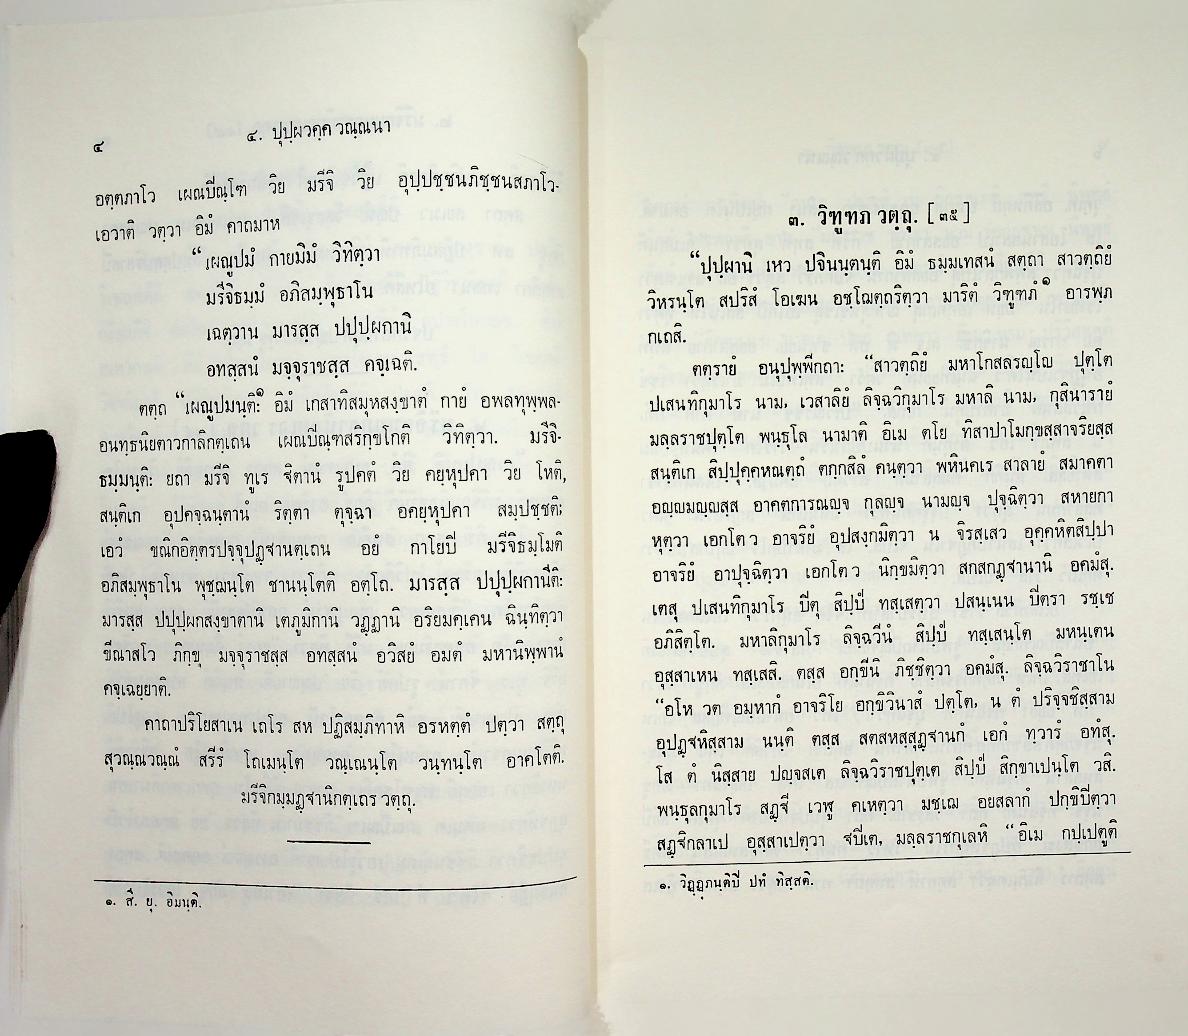 ๔
๔. ปุปฺผวคฺค วณฺณนา
อตฺตภาโว เผณปิณฺโฑ วิย มรีจิ วิย อุปฺปชฺชนภิชฺชนสภาโว-
เอวาติ วตฺวา อิมํ คาถมาห
“เผณูปมํ กายมิมํ วิทิตฺวา
มรีจิธมฺมํ อภิสมฺพุธาโน
เฉตฺวาน มารสฺส ปปุปฺผกานิ
อทสฺสนํ มจฺจุราชสฺส คจฺเฉติ.
ตตฺถ “เผณูปมนฺติ:๑ อิมํ เกสาทิสมุหสงฺขาตํ กายํ อพลทุพฺพล-
อนทฺธนิยตาวกาลิกตฺเถน เผณปิณฺฑสริกฺขโกติ วิทิตฺวา. มรีจิ-
ธมฺมนฺติ: ยถา มรีจิ ทูเร ฐิตานํ รูปคตํ วิย คยฺหุปคา วิย โหติ,
สนฺติเก อุปคจฺฉนฺตานํ ริตฺตา ตุจฺฉา อคยฺหุปคา สมฺปชฺชติ;
เอวํ ขณิกอิตฺตรปจฺจุปฏฺฐานตฺเถน อยํ กาโยปิ มรีจิธมฺโมติ
อภิสมฺพุธาโน พุชฺฌนฺโต ชานนฺโตติ อตฺโถ. มารสฺส ปปุปฺผกานีติ:
มารสฺส ปปุปฺผกสงฺขาตานิ เตภูมิกานิ วฏฺฏานิ อริยมคฺเคน ฉินฺทิตฺวา
ขีณาสโว ภิกฺขุ มจฺจุราชสฺส อทสฺสนํ อวิสยํ อมตํ มหานิพฺพานํ
คจฺเฉยฺยาติ.
คาถาปริโยสาเน เถโร สห ปฏิสมฺภิทาหิ อรหตฺตํ ปตฺวา สตฺถุ
สุวณฺณวณฺณํ สรีรํ โถเมนฺโต วณฺเณนฺโต วนฺทนฺโต อาคโตติ.
มรีจิกมฺมฏฺฐานิกตฺเถร วตฺถุ.
๑. สี. ยุ. อิมนฺติ.
๓. วิฑูฑภ วตฺถุ. [๓๕]
“ปุปฺผานิ เหว ปจินนฺตนฺติ อิมํ ธมฺมเทสนํ สตฺถา สาวตฺถิยํ
วิหรนฺโต สปริสํ โอเฆน อชฺโฌตฺถริตฺวา มาริตํ วิฑูฑภํ๑ อารพฺภ
กเถสิ.
ตตฺรายํ อนุปุพฺพีกถา: “สาวตฺถิยํ มหาโกสลรญฺโญ ปุตฺโต
ปเสนทิกุมาโร นาม, เวสาลิยํ ลิจฺฉวิกุมาโร มหาลิ นาม, กุสินารายํ
มลฺลราชปุตฺโต พนฺธุโล นามาติ อิเม ตโย ทิสาปาโมกฺขสฺสาจริยสฺส
สนฺติเก สิปฺปุคฺคหณตฺถํ ตกฺกสิลํ คนฺตฺวา พหินคเร สาลายํ สมาคตา
อญฺญมญฺญสฺส อาคตการณญฺจ กุลญฺจ นามญฺจ ปุจฺฉิตฺวา สหายกา
หุตฺวา เอกโต ว อาจริยํ อุปสงฺกมิตฺวา น จิรสฺเสว อุคฺคหิตสิปฺปา
อาจริยํ อาปุจฺฉิตฺวา เอกโต ว นิกฺขมิตฺวา สกสกฏฺฐานานิ อคมํสุ.
เตสุ ปเสนทิกุมาโร ปิตุ สิปฺปํ ทสฺเสตฺวา ปสนฺเนน ปิตรา รชฺเช
อภิสิตฺโต. มหาลิกุมาโร ลิจฺฉวีนํ สิปฺปํ ทสฺเสนฺโต มหนฺเตน
อุสฺสาเหน ทสฺเสสิ. ตสฺส อกฺขีนิ ภิชฺชิตฺวา อคมํสุ. ลิจฺฉวิราชาโน
“อโห วต อมฺหากํ อาจริโย อกฺขิวินาสํ ปตฺโต, น ตํ ปริจฺจชิสฺสาม
อุปฏฺฐหิสฺสาม นนฺติ ตสฺส สตสหสฺสุฏฺฐานกํ เอกํ ทฺวารํ อทํสุ.
โส ตํ นิสฺสาย ปญฺจสเต ลิจฺฉวิราชปุตฺเต สิปฺปํ สิกฺขาเปนฺโต วสิ.
พนฺธุลกุมาโร สฏฺฐี เวฬู คเหตฺวา มชฺเฌ อยสลากํ ปกฺขิปิตฺวา
สฏฺฐิกลาเป อุสฺสาเปตฺวา ฐปิเต, มลฺลราชกุเลหิ “อิเม กปฺเปตูติ
๑. วิฏฺฏุภนฺติปิ ปทํ ทิสฺสติ.